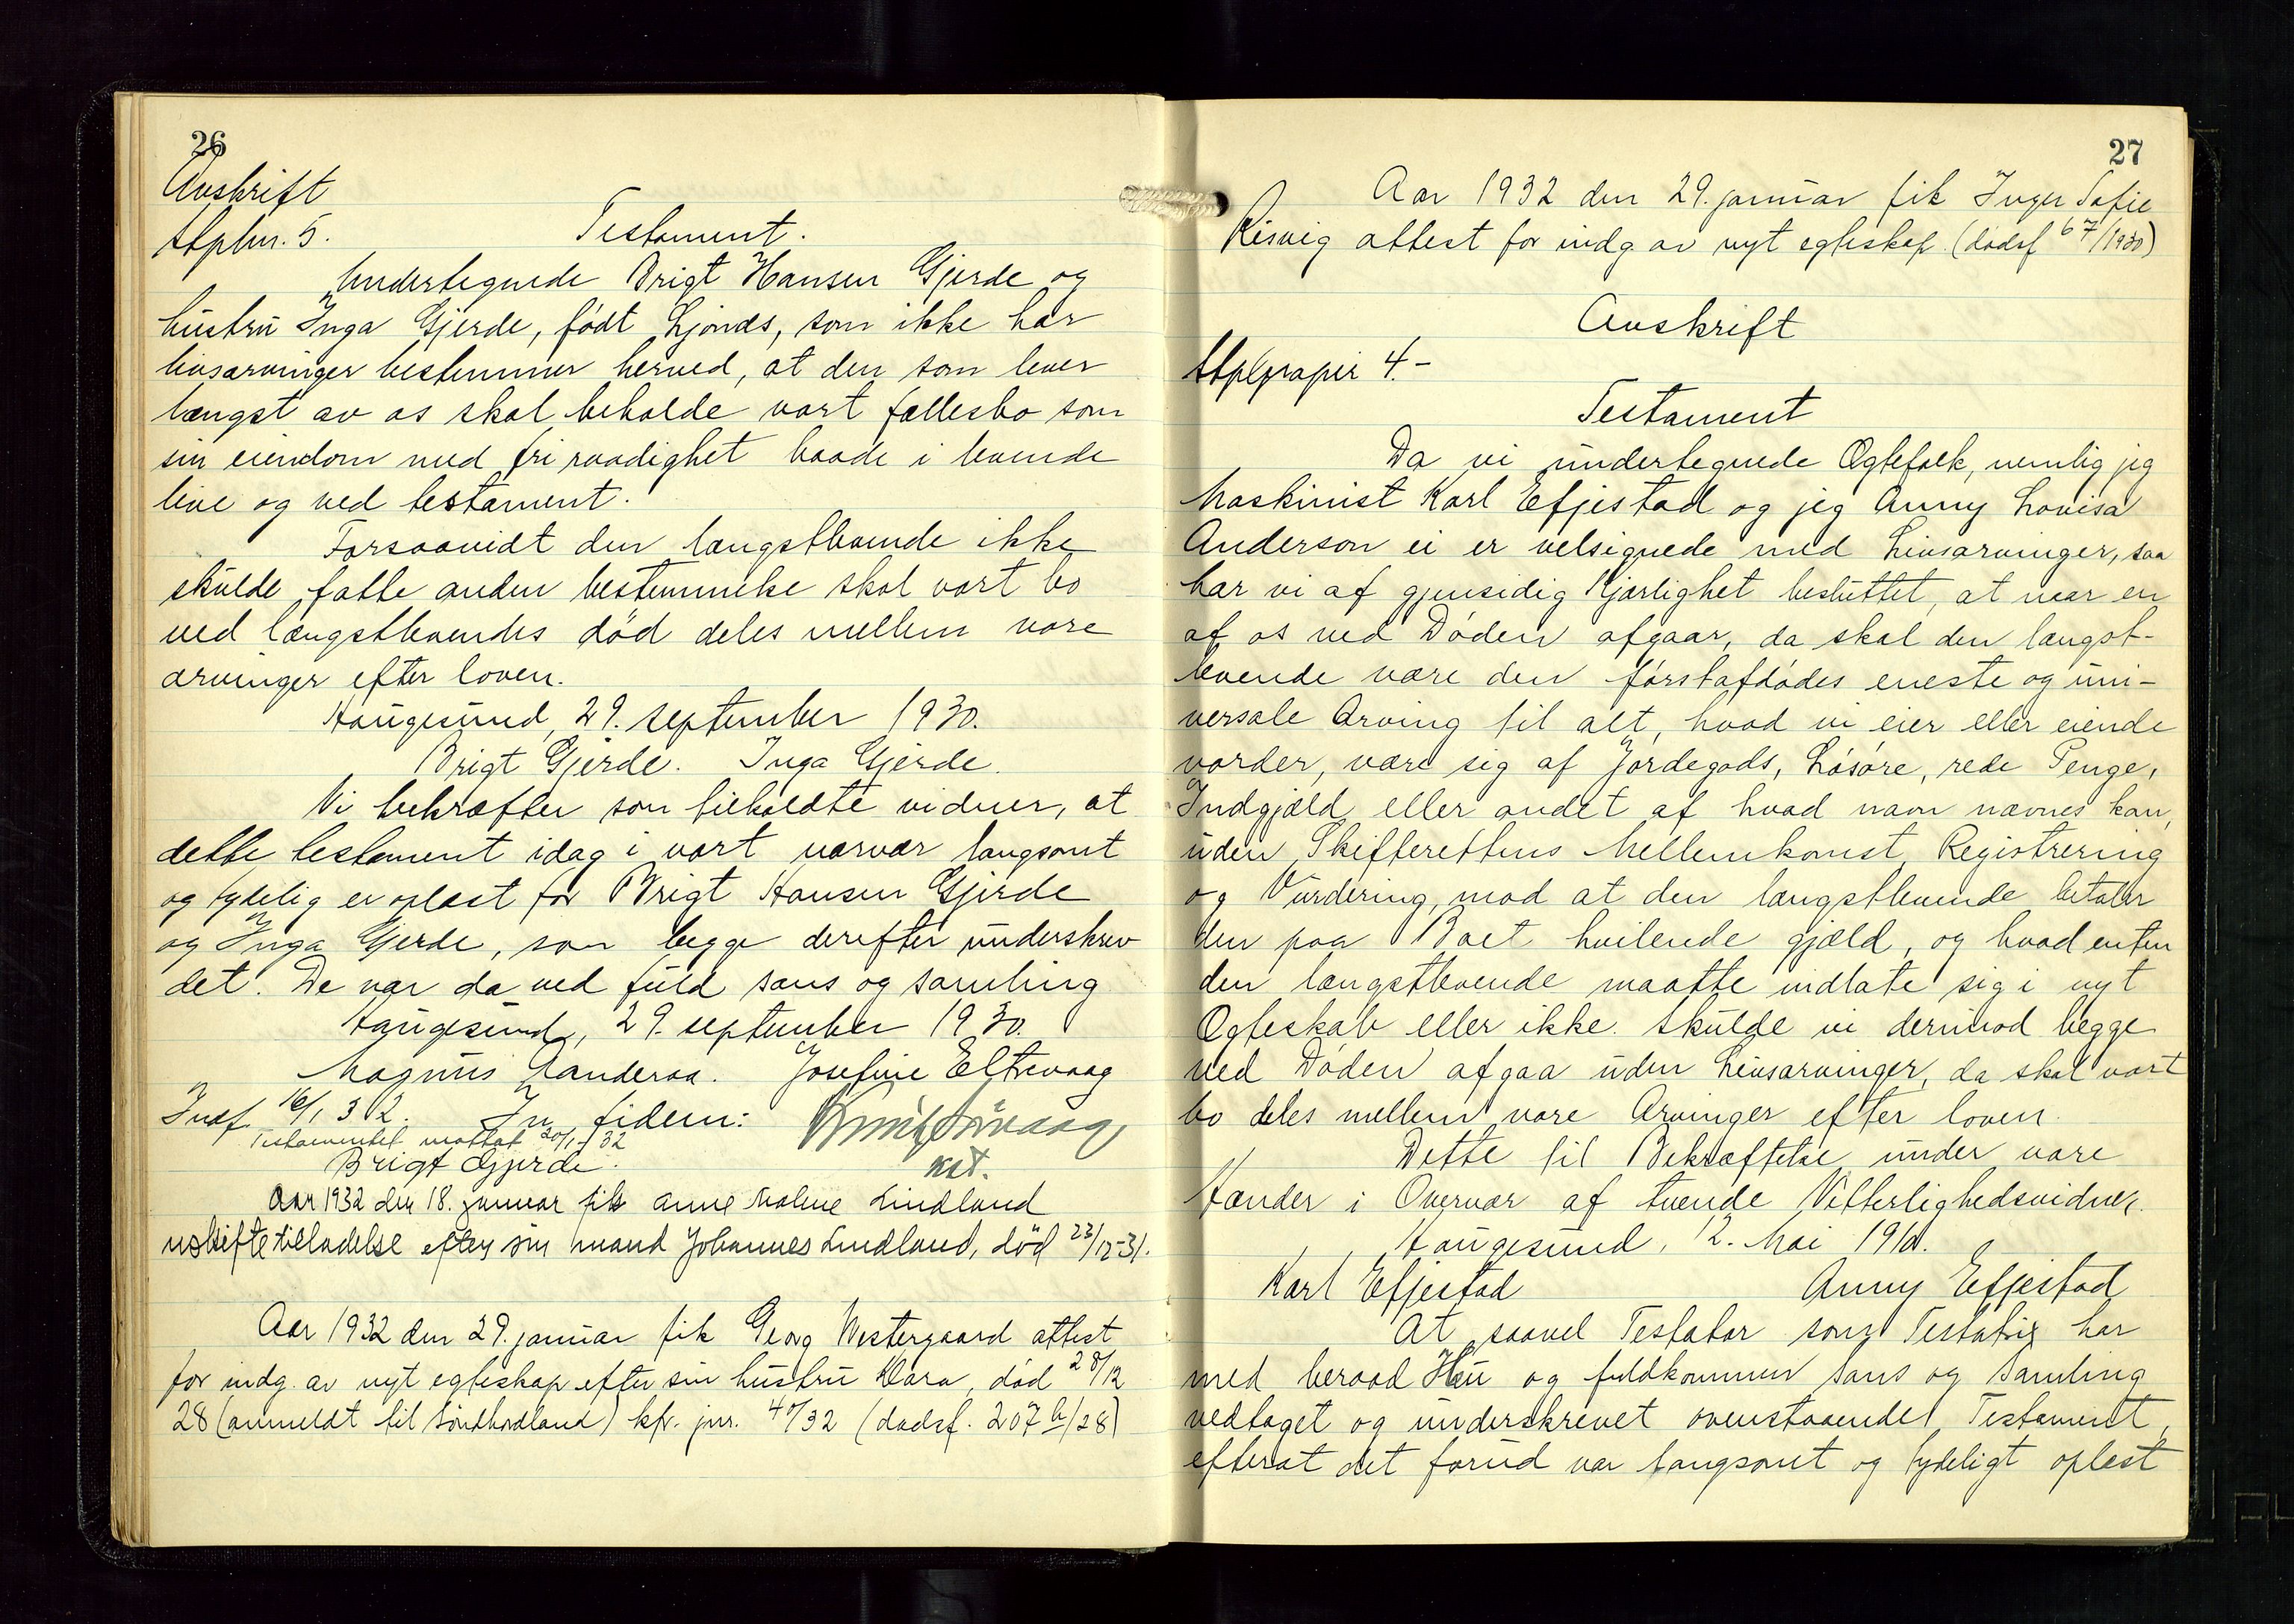 26
Avskrift
Stplm. 5.
Testament.
Undertegnede Brigt Hansen Gjerde og
hustru Inga Gjerde, født Ljonds, som ikke har
livsarvinger bestemmer herved, at den som lever
længst av os skal beholde vort fællesbo som
sin eiendom med fri raadighet baade i levende
live og ved testament.
Forsaavidt den længstlevende ikke
skulde fatte anden bestemmelse skal vort bo
ved længstlevendes død deles mellem vore
arvinger efter loven.
Haugesund, 29. september 1930.
Brigt Gjerde. Inga Gjerde.
Vi bekræfter som tilkaldte vidner, at
dette testament idag i vort nærvær langsomt
og tydelig er oplæst for Brigt Hansen Gjerde
og Inga Gjerde, som begge derefter underskrev
det. De var da ved fuld sans og samling
Haugesund, 29. september 1930.
Magnus Vanderaa. Josefine Eltrevaag
Indf. 16/1 32. In fidem:
Testamentet mottat 20/1-32
Brigt Gjerde.
Aar 1932 den 18. januar fik Anne Malene Lindland
uskiftetilladelse efter sin mand Johannes Lindland, død 23/12-31.
Aar 1932 den 29. januar fik Georg Westergaard attest
for indg. av nyt egteskap efter sin hustru Klara, død 28/12
28 (anmeldt til Söndhordland) kfr. jnr. 40/32 (dødsf. 207 b/28)
27
Aar 1932 den 29. januar fik Inger Sofie
Risvig attest for indg av nyt egteskap (dødsf 67/1930)
Avskrift
Stplpapir 4.-
Testament
Da vi undertegnede Ægtefolk, nemlig jeg
Maskinist Karl Efjestad og jeg Anny Lovisa
Anderson ei er velsignede med Livsarvinger, saa
har vi af gjensidig Kjærlighet besluttet, at naar en
af os ved Døden afgaar, da skal den længst-
levende være den førstafdødes eneste og uni-
versale Arving til alt, hvad vi eier eller eiende
vorder, være sig af Jordegods, Løsøre, rede Penge,
Indgjæld eller andet af hvad navn nævnes kan,
uden Skifterettens Mellemkomst, Registrering
og Vurdering, mod at den længstlevende betaler
den paa Boet hvilende gjæld, og hvad enten
den længstlevende maatte indlate sig i nyt
Ægteskab eller ikke. Skulde vi derimod begge
ved Døden afgaa uden Livsarvinger, da skal vort
bo deles mellem vore Arvinger efter loven.
Dette til Bekræftelse under vore
Hænder i Overvær af tvende Vitterlighedsvidner.
Haugesund, 12. Mai 1910.
Karl Efjestad Anny Efjestad
At saavel Testator som Testatrix har
med beraad Hu og fuldkommen sans og samling
vedtaget og underskrevet ovenstaaende Testament,
efterat det forud var langsomt og tydeligt oplæst